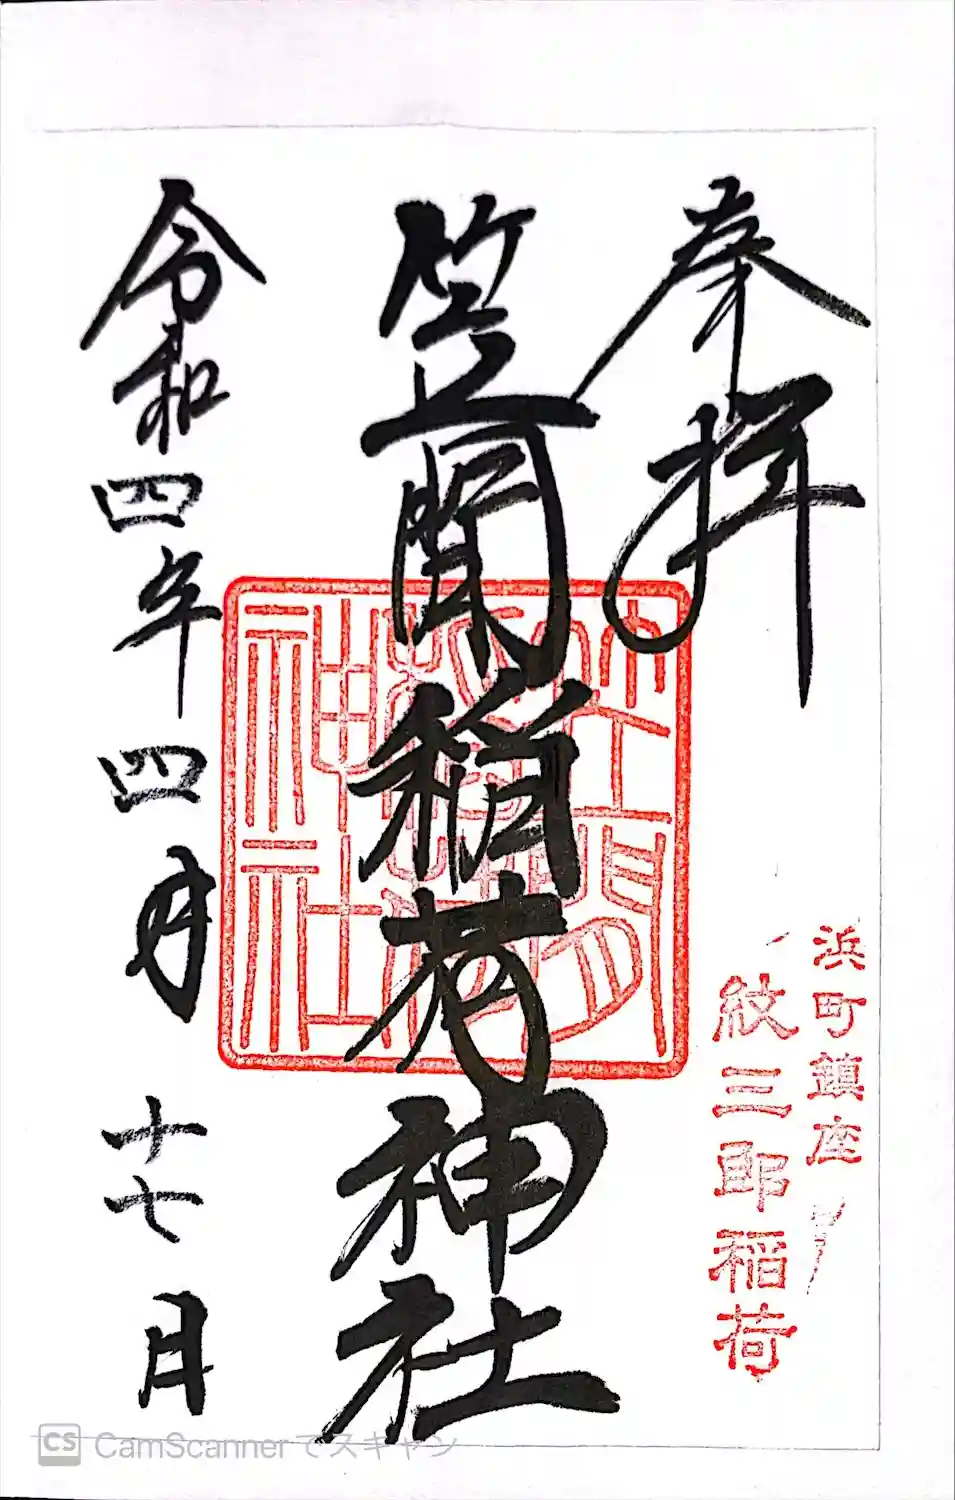 奉拝
浜町鎮座
紋三郎稲荷
笠間稲荷神社
笠間
稲荷
神社
令和四年四月十七日
CS CamScannerでスキャン